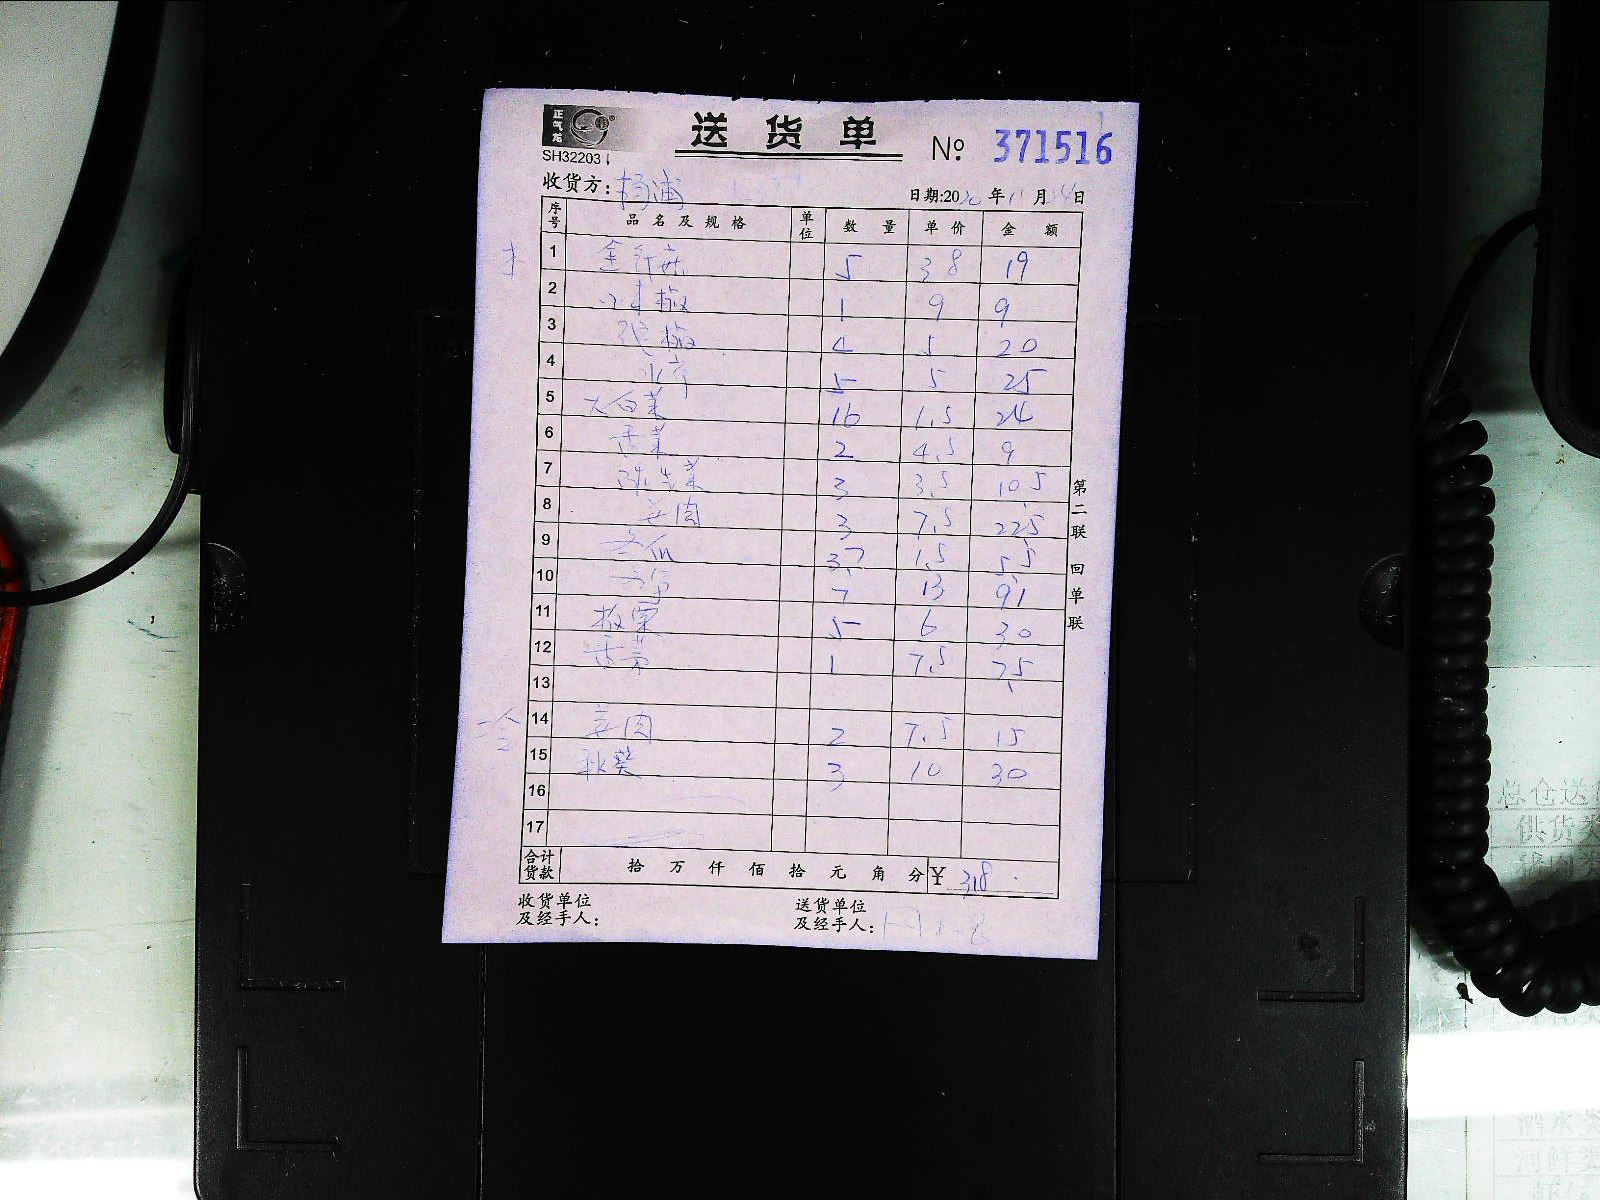 正气龙
送货单 № 371516
SH32203
收货方: 杨浦 日期:2020年11月 日
序号 品名及规格 单位 数量 单价 金额
1 金针菇 5 3.8 19
2 小米椒 1 9 9
3 椒 4 5 20
4 水芹 5 5 25
5 大白菜 16 1.5 24
6 香菜 2 4.5 9
7 菜 3 3.5 10.5
8 姜肉 3 7.5 22.5
9 冬瓜 3.7 1.5 5.5
10 7 13 91
11 板栗 5 6 30
12 香 1 7.5 7.5
13
14 姜肉 2 7.5 15
15 秋葵 3 10 30
16
17
合计货款 拾 万 仟 佰 拾 元 角 分 ¥ 318
收货单位及经手人:
送货单位及经手人:
第二联 回单联
总仓送
供货类
河鲜类